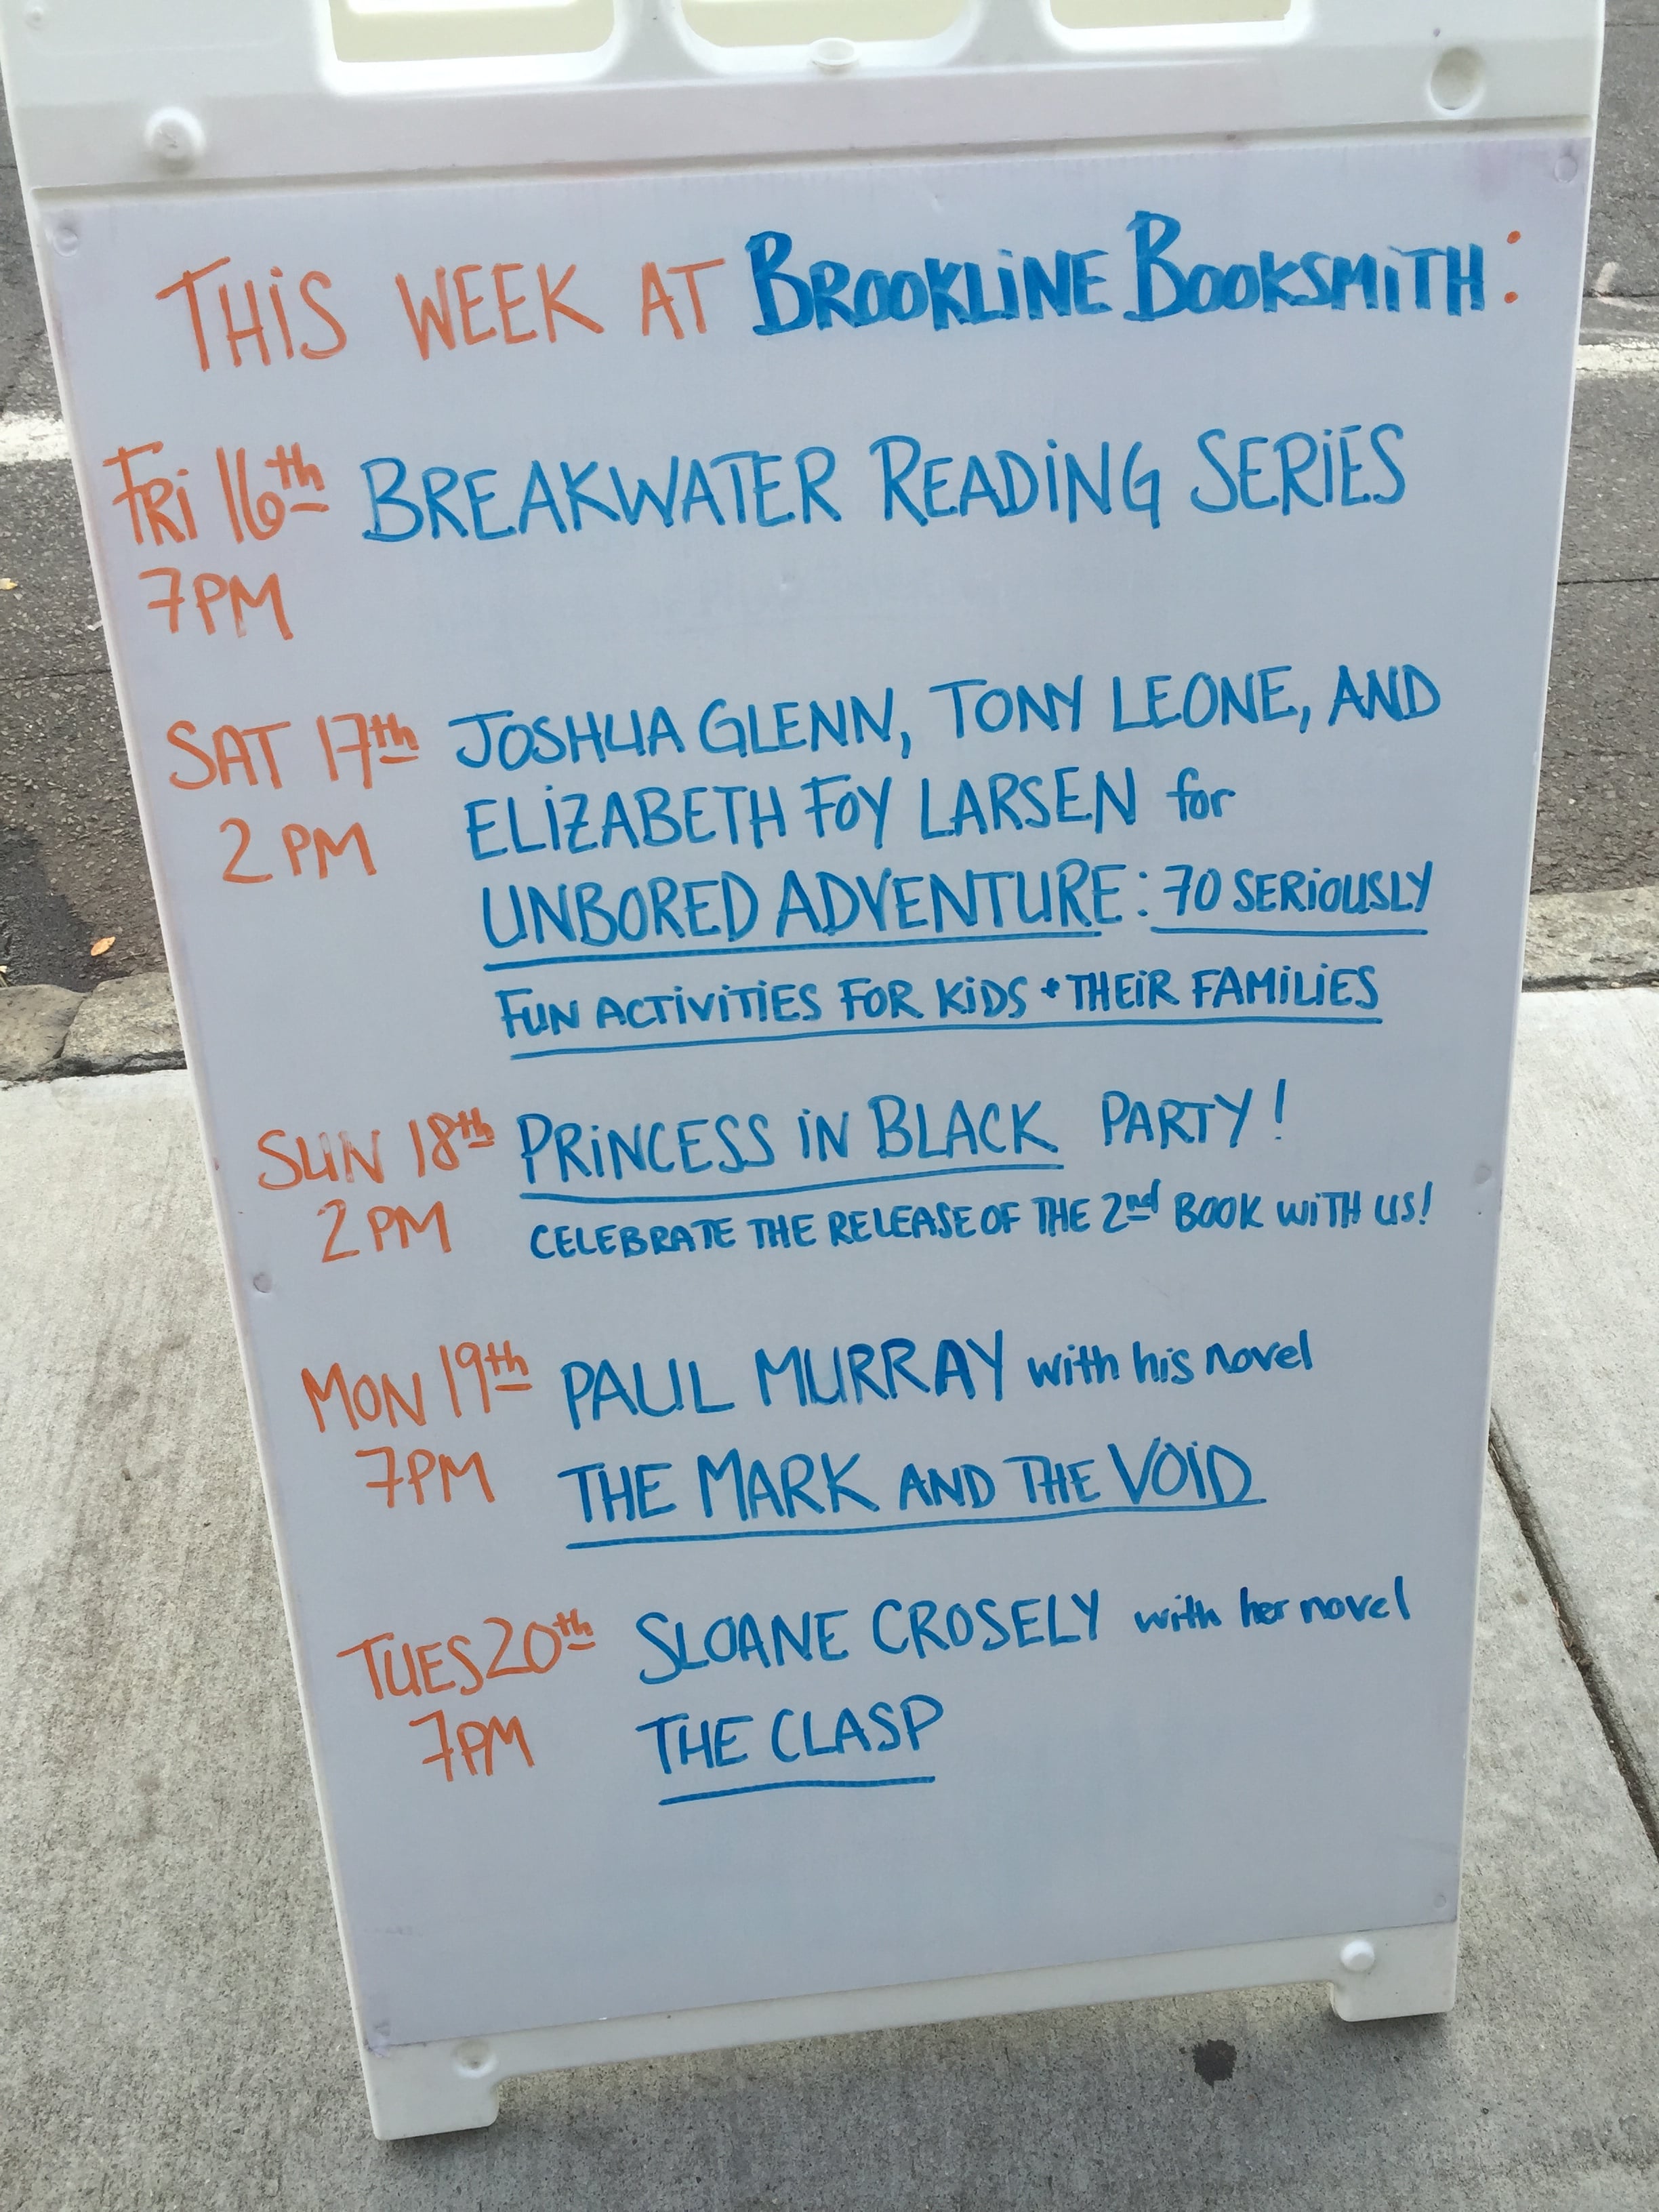 THIS WEEK AT BROOKLINE BOOKSMITH:
FRI 16th BREAKWATER READING SERIES
7PM
SAT 17th JOSHUA GLENN, TONY LEONE, AND
2 PM ELIZABETH FOY LARSEN for
UNBORED ADVENTURE: 70 SERIOUSLY
FUN ACTIVITIES FOR KIDS + THEIR FAMILIES
SUN 18th PRINCESS IN BLACK PARTY!
2 PM CELEBRATE THE RELEASE OF THE 2nd BOOK WITH US!
MON 19th PAUL MURRAY with his novel
7PM THE MARK AND THE VOID
TUES 20th SLOANE CROSELY with her novel
7PM THE CLASP